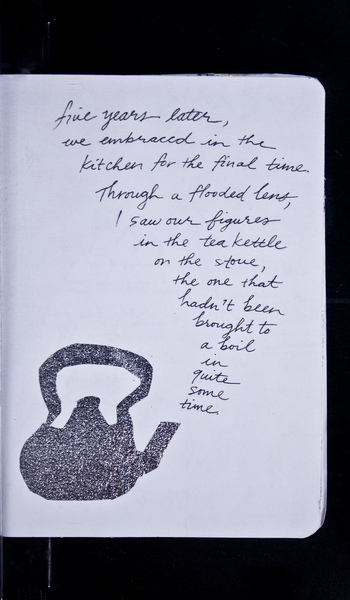 five years later,
we embraced in the
kitchen for the final time.
Through a flooded lens,
I saw our figures
in the tea kettle
on the stove,
the one that
hadn't been
brought to
a boil
in
quite
some
time.